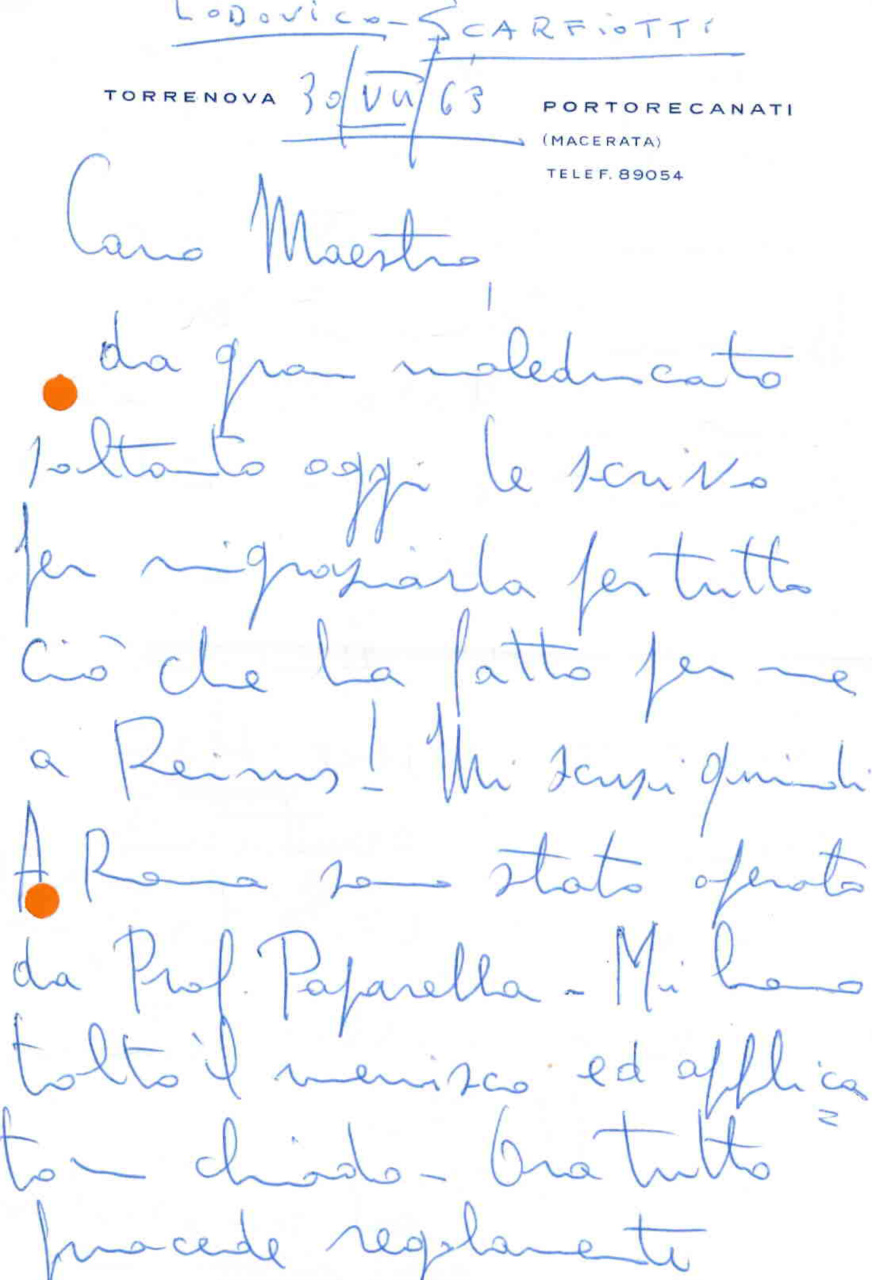 LODOVICO - SCARFIOTTI
TORRENOVA 30/VII/63 PORTORECANATI
(MACERATA)
TELEF. 89054
Caro Maestro,
da gran maleducato
soltanto oggi le scrivo
per ringraziarla per tutto
ciò che ha fatto per me
a Reims! Mi scusi quindi
A Roma sono stato operato
da Prof. Paparella - Mi hanno
tolto il menisco ed applica=
to un chiodo - Ora tutto
procede regolarmente